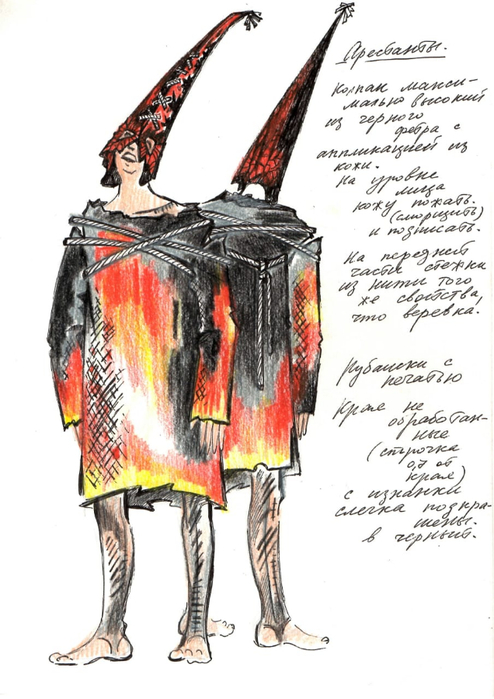 Арестанты.
Колпак макси-
мально высокий
из черного
фетра с
аппликацией из
кожи.
На уровне
лица
кожу пожать.
(сморщить)
и подписать.
На передней
части стежки
из нити того
же свойства,
что веревка.
Рубашки с
печатью
Края не
обработан-
ные
(строчка
0,7 от
края)
с изнанки
слегка подкра-
шены.
в черный.